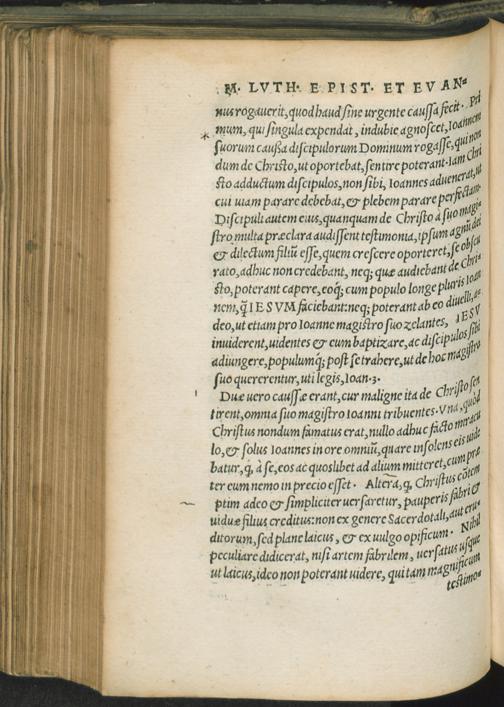 M. LVTH. EPIST. ET EVAN=
nus rogauerit, quod haud sine urgente caussa fecit. Pri
mum, qui singula expendat, indubie agnoscet, Ioannem
suorum caußa discipulorum Dominum rogasse, qui non
dum de Christo, ut oportebat, sentire poterant. Iam Chri
sto adductum discipulos, non sibi, Ioannes aduenerat, ut
cui uiam parare debebat, & plebem parare perfectam.
Discipuli autem eius, quanquam de Christo à suo magi=
stro multa præclara audissent testimonia, ipsum agnũ dei
& dilectum filiũ esse, quem crescere oporteret, se obscu
rato, adhuc non credebant, neq; quæ audiebant de Chri=
sto, poterant capere, eoq́; cum populo longe pluris Ioan
nem, q̃ IESVM faciebant: neq; poterant ab eo diuelli, a=
deo, ut etiam pro Ioanne magistro suo zelantes, IESV
inuiderent, uidentes & eum baptizare, ac discipulos sibi
adiungere, populumq́; post se trahere, ut de hoc magistro
suo quererentur, uti legis, Ioan. 3.
Duæ uero caussæ erant, cur maligne ita de Christo sen
tirent, omnia suo magistro Ioanni tribuentes. Vna, quòd
Christus nondum famatus erat, nullo adhuc facto miracu
lo, & solus Ioannes in ore omniũ, quare insolens eis uide
batur, q, à se, eos ac quoslibet ad alium mitteret, cum præ
ter eum nemo in precio esset. Altera, q, Christus cõtem
ptim adeo & simpliciter uersaretur, pauperis fabri &
uiduæ filius creditus: non ex genere Sacerdotali, aut eru=
ditorum, sed plane laicus, & ex uulgo opificum. Nihil
peculiare didicerat, nisi artem fabrilem, uersatus usque
ut laicus, ideo non poterant uidere, qui tam magnificum
testimo=